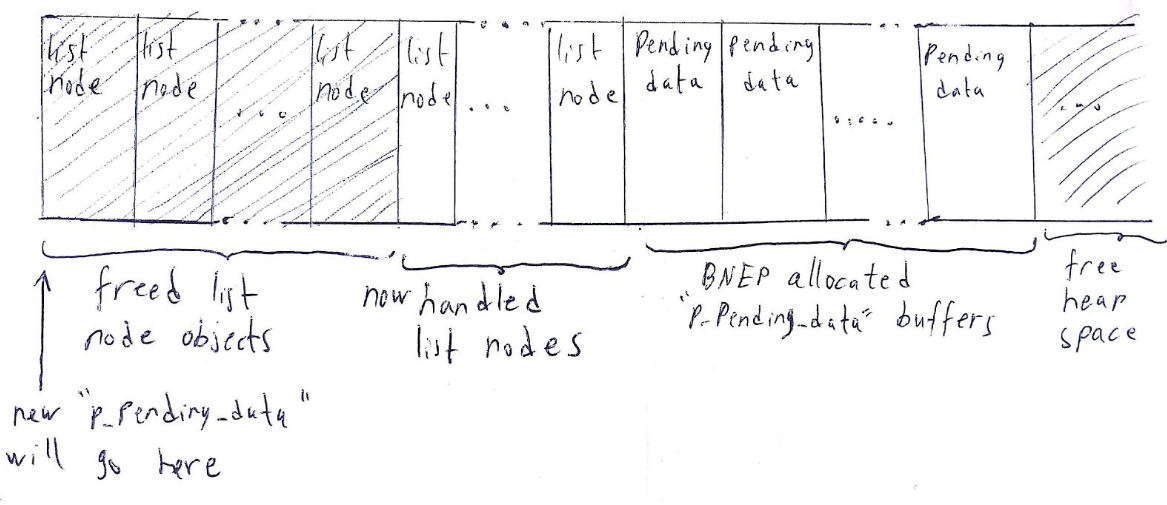 list node
list node
. . .
list node
list node
. . .
list node
Pending data
pending data
. . . . .
Pending data
. . .
freed list node objects
now handled list nodes
BNEP allocated "P_Pending_data" buffers
free heap space
new "p_pending_data" will go here